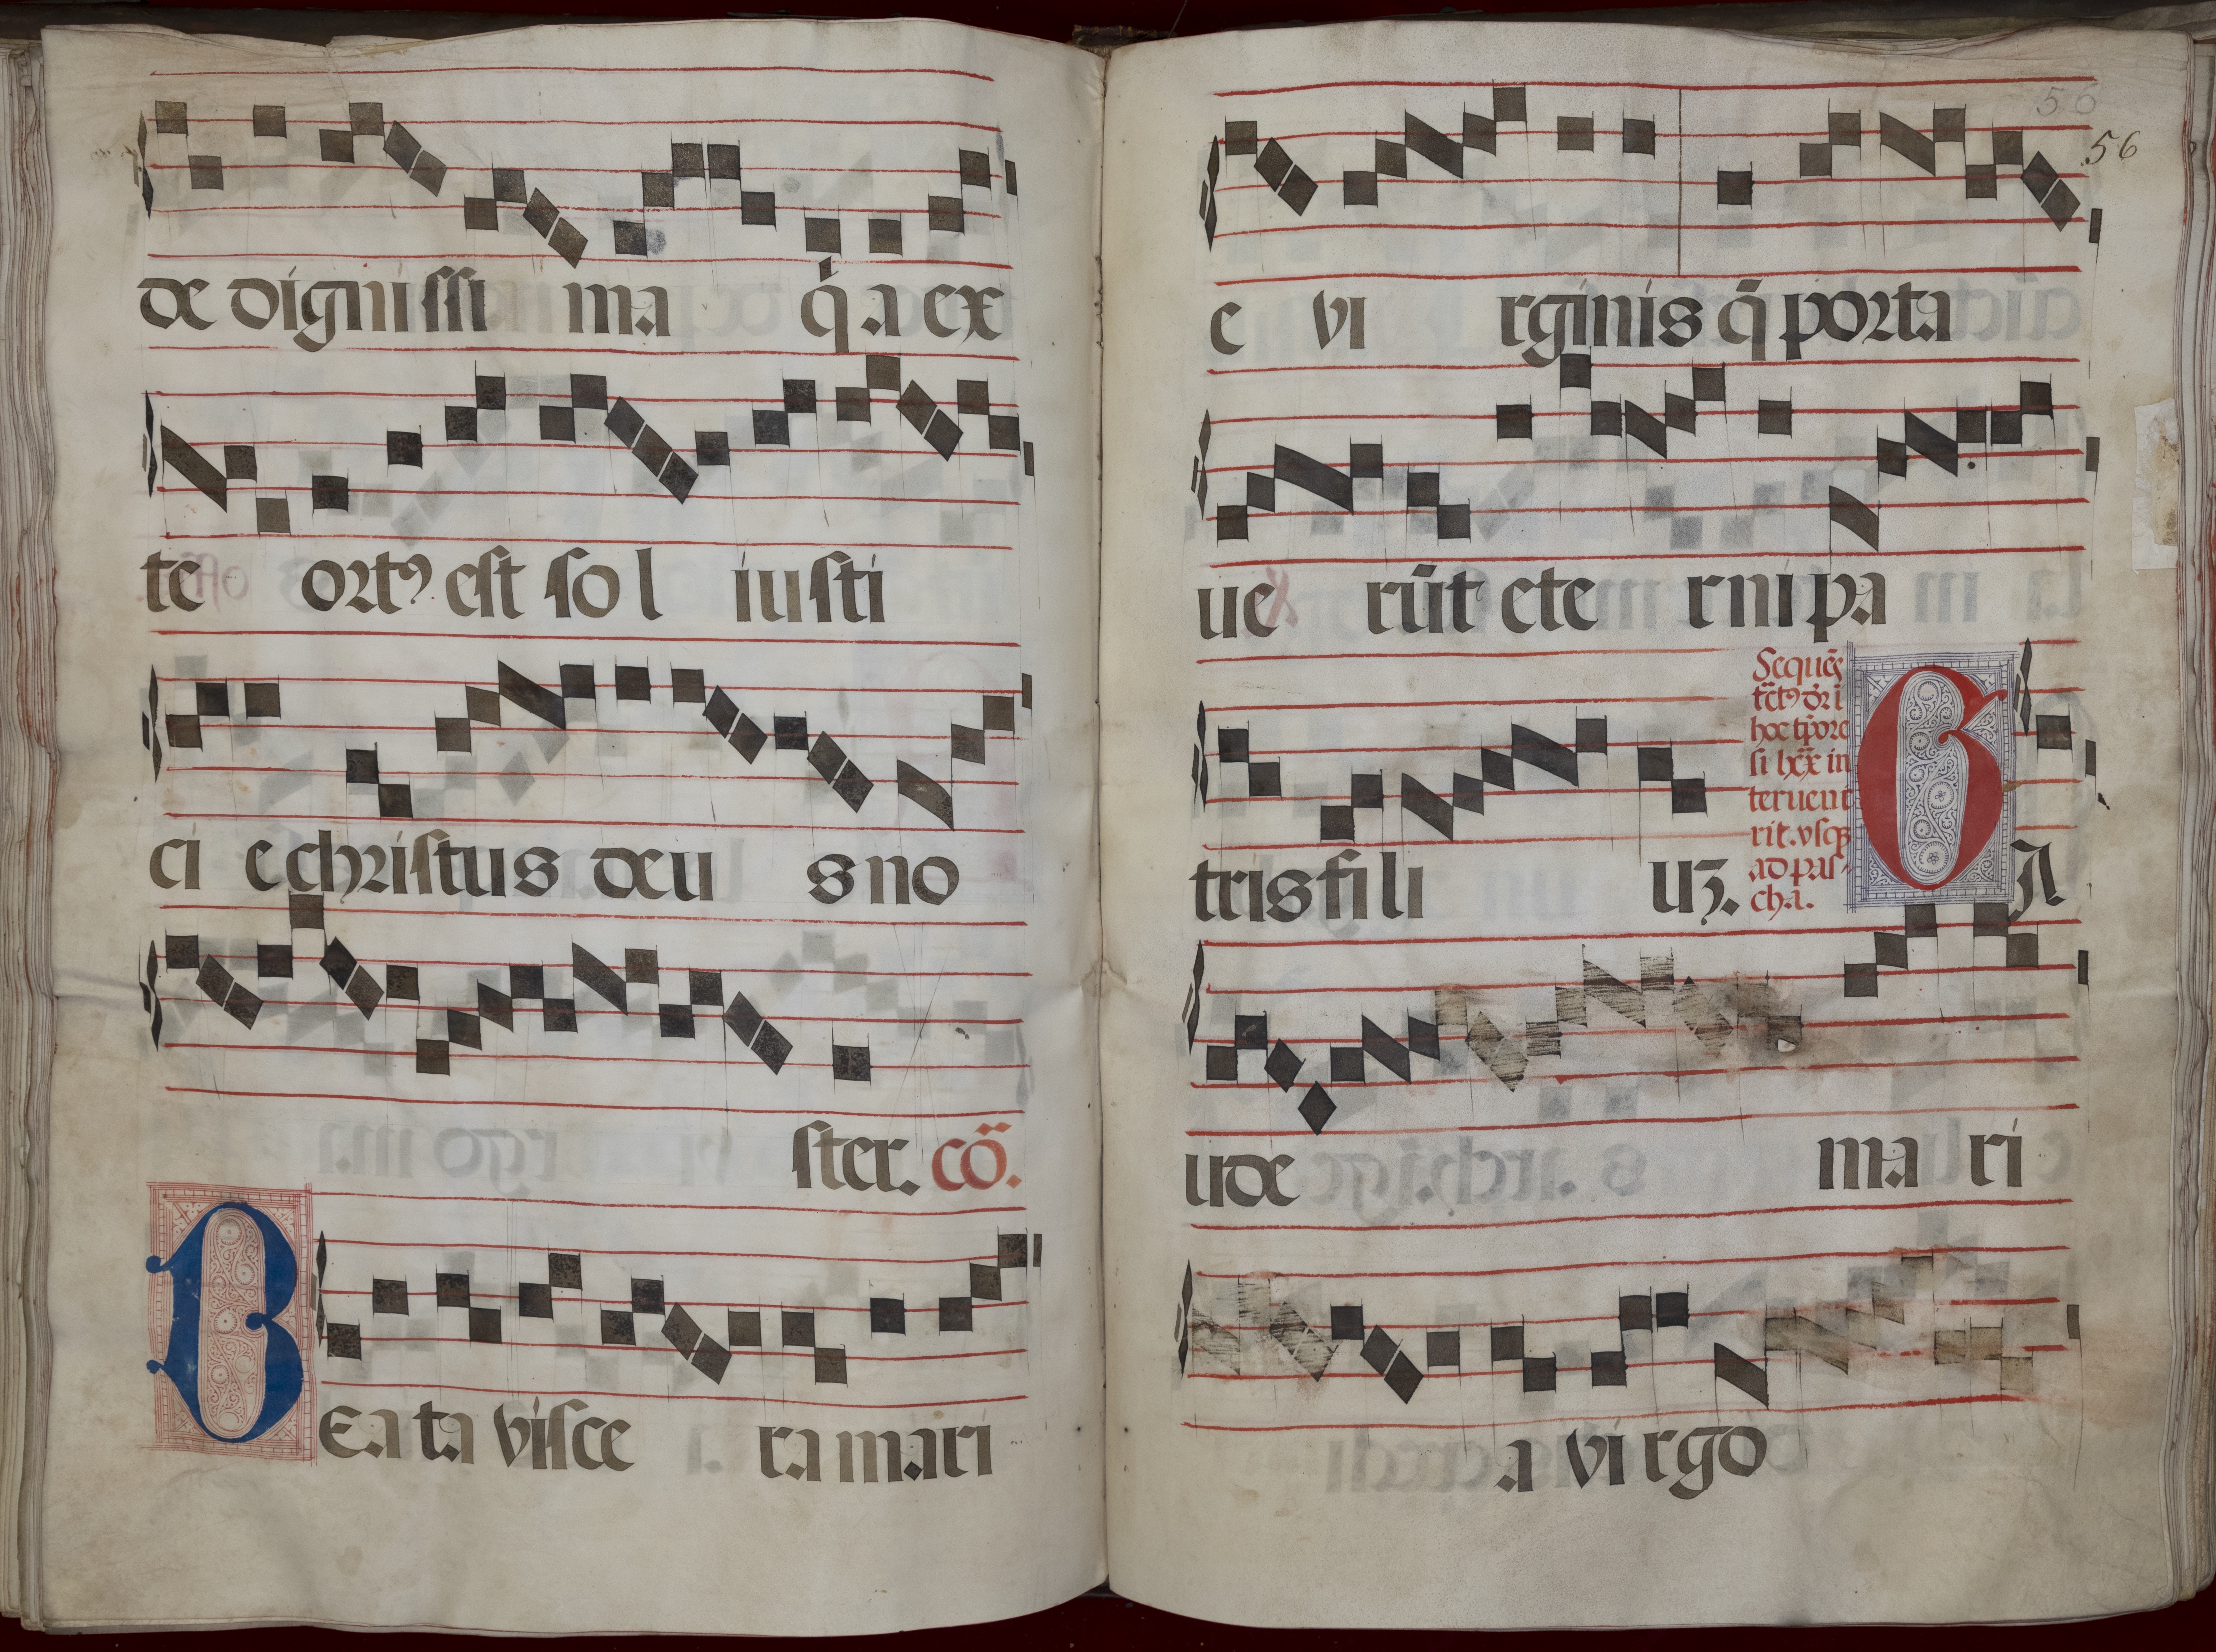 de dignissi ma q̇ a ex
te ortꝰ est so l iusti
ci e christus deu s no
ster. cō.
BEa ta visce ra mari
56
56
e vi rginis q̄ porta
ue rūt ete rni pa
tris fi li uʒ.
Sequēs
tctꝰ
hoc tp̄ore
si
in
teruene
rit. vsqʒ
ad pas-
cha.
GA
ude ma ri
a vi rgo